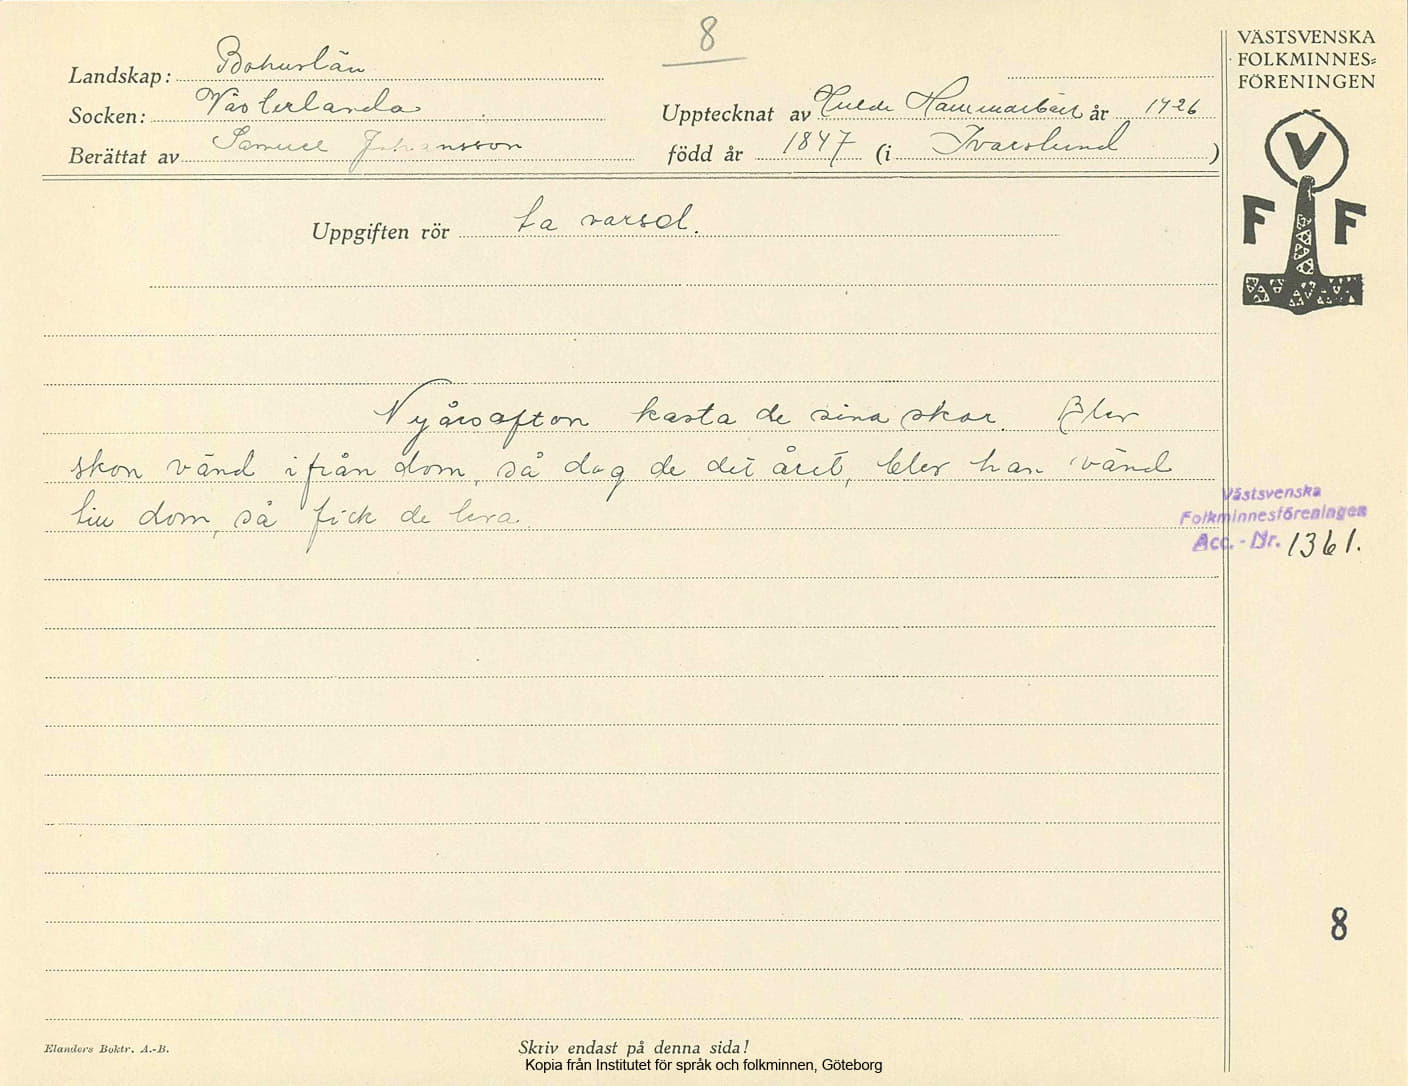 8
VÄSTSVENSKA
FOLKMINNES=
FÖRENINGEN
Landskap: Bohuslän
Socken: Västerlanda
Upptecknat av Hulda Hammarbäck år 1926
Berättat av Samuel Johansson
född år 1847 (i Ivarslund)
V
F F
Uppgiften rör ta varsel.
Nyårsafton kasta de sina skor. Blev
skon vänd ifrån dom, så dog de det året, blev han vänd
till dom, så fick de leva.
Västsvenska
Folkminnesföreningen
Acc. - Nr. 1361.
8
Elanders Boktr. A.-B.
Skriv endast på denna sida!
Kopia från Institutet för språk och folkminnen, Göteborg